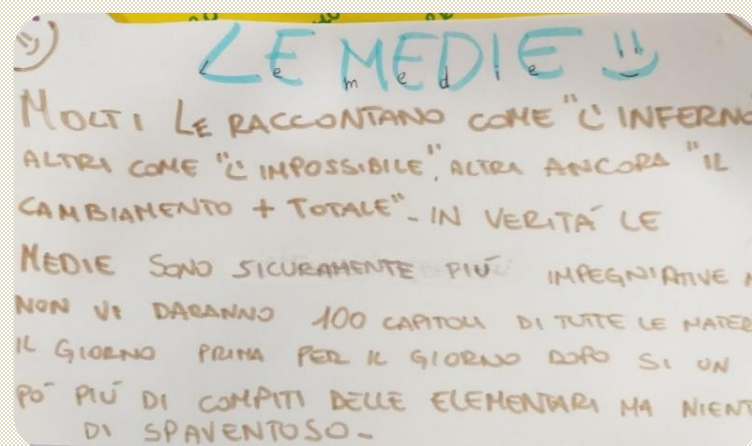 LE MEDIE
L e m e d i e
MOLTI LE RACCONTANO COME "L'INFERNO
ALTRI COME "L'IMPOSSIBILE", ALTRI ANCORA "IL
CAMBIAMENTO + TOTALE". IN VERITÀ LE
MEDIE SONO SICURAMENTE PIÚ IMPEGNIATIVE
NON VI DARANNO 100 CAPITOLI DI TUTTE LE MATER
IL GIORNO PRIMA PER IL GIORNO DOPO SI UN
PÓ PIÚ DI COMPITI DELLE ELEMENTARI MA NIENT
DI SPAVENTOSO-